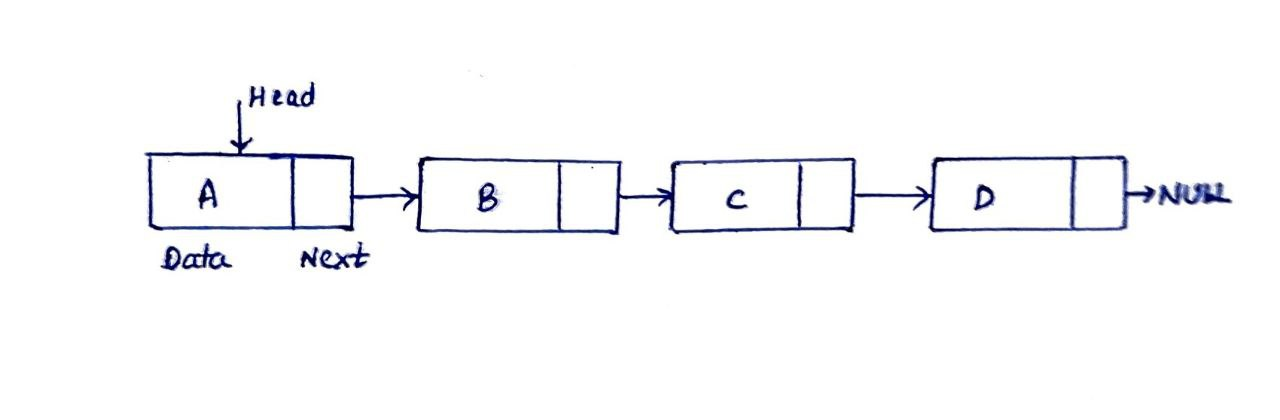 Head
A B C D NULL
Data Next